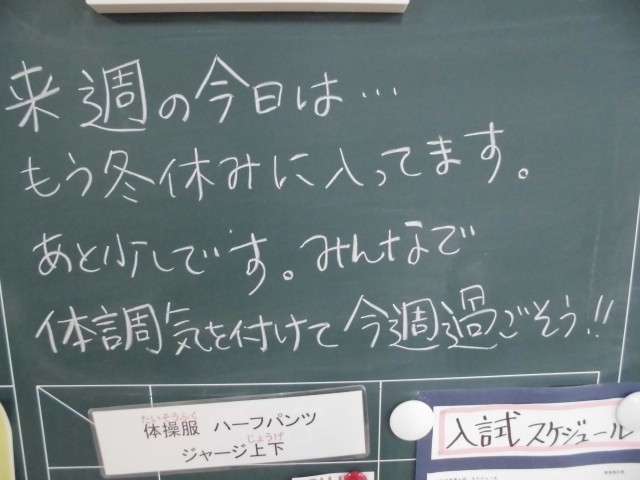 来週の今日は…
もう冬休みに入ってます。
あと少しです。みんなで
体調気を付けて今週過ごそう!!
たいそうふく
体操服 ハーフパンツ
じょうげ
ジャージ上下
入試スケジュール